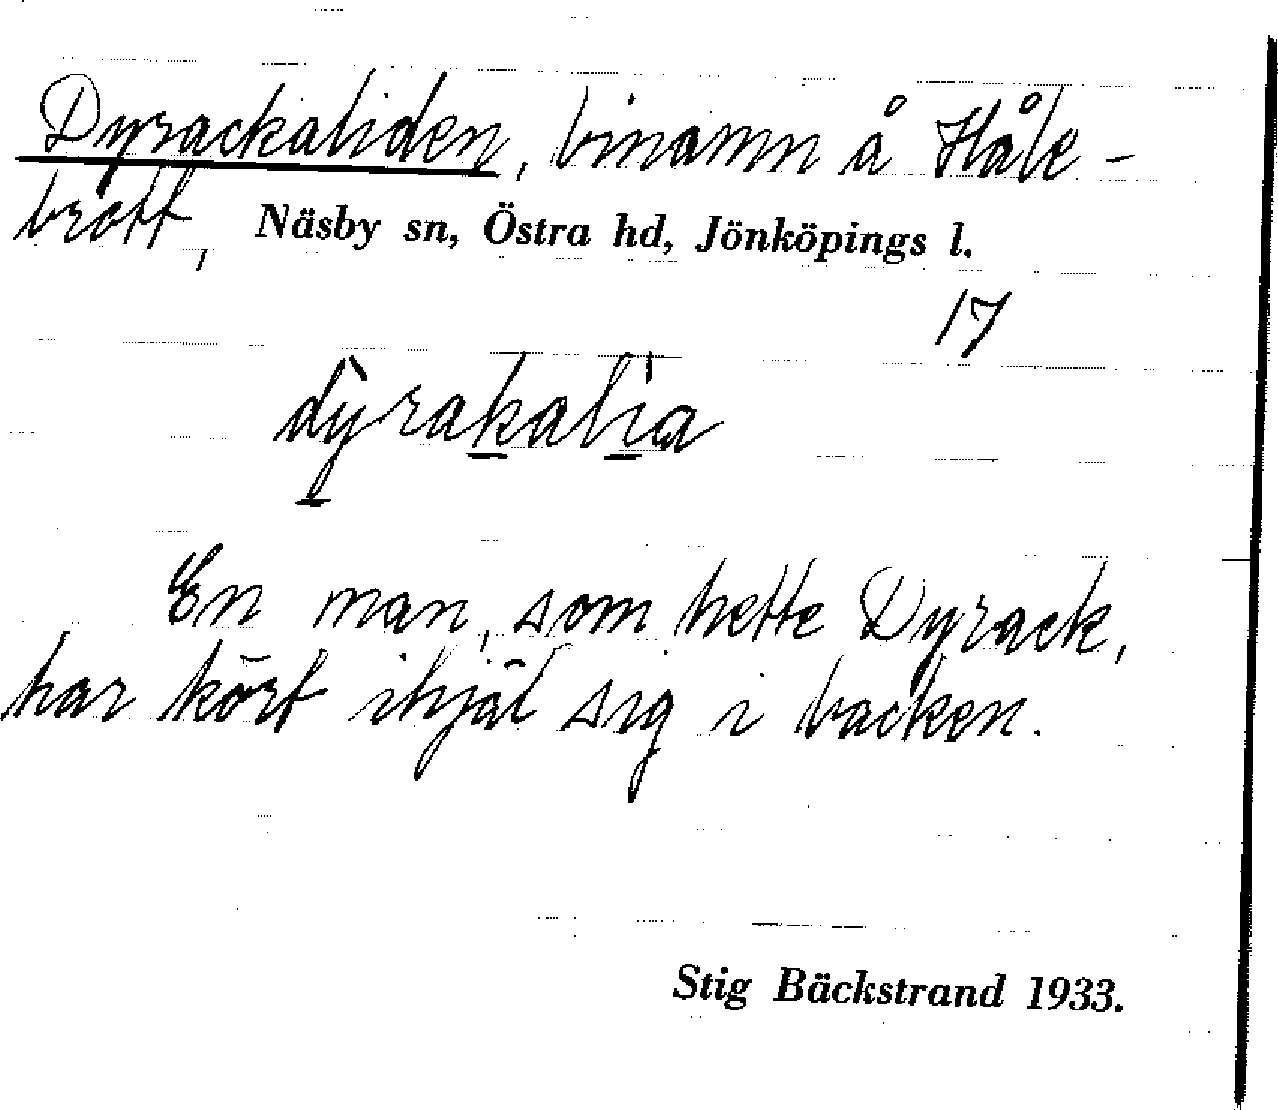 Dyrackaliden, binamn å Håle-
brott,
Näsby sn, Östra hd, Jönköpings l.
17
dỳ̠rak̠al̠ı̍a
En man, som hette Dyrack,
har kört ihjäl sig i backen.
Stig Bäckstrand 1933.